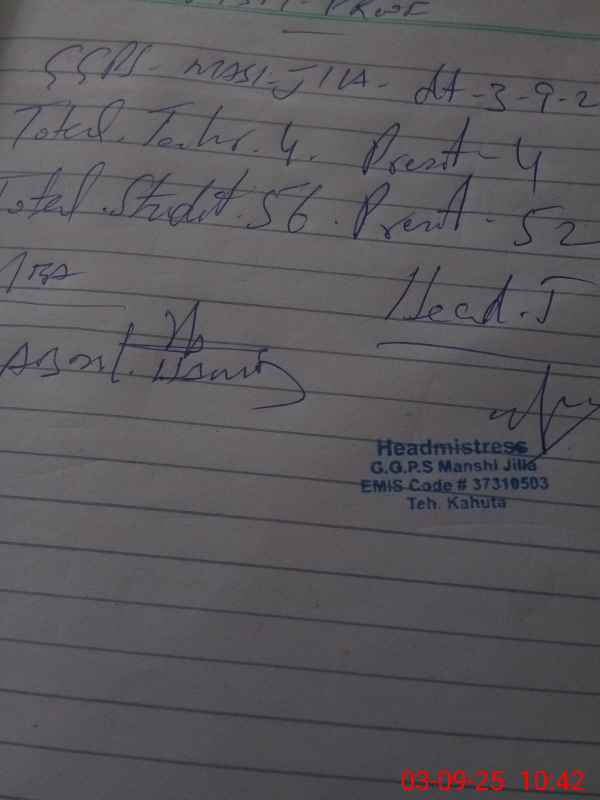 GGPS - MASI - JILA - dt - 3 - 9 - 2
Total. Teahr. 4. Presnt - 4
Total. Studnt. 56. Presnt - 52
Head. T
Headmistress
G.G.P.S Manshi Jilla
EMIS Code # 37310503
Teh. Kahuta
03-09-25 10:42